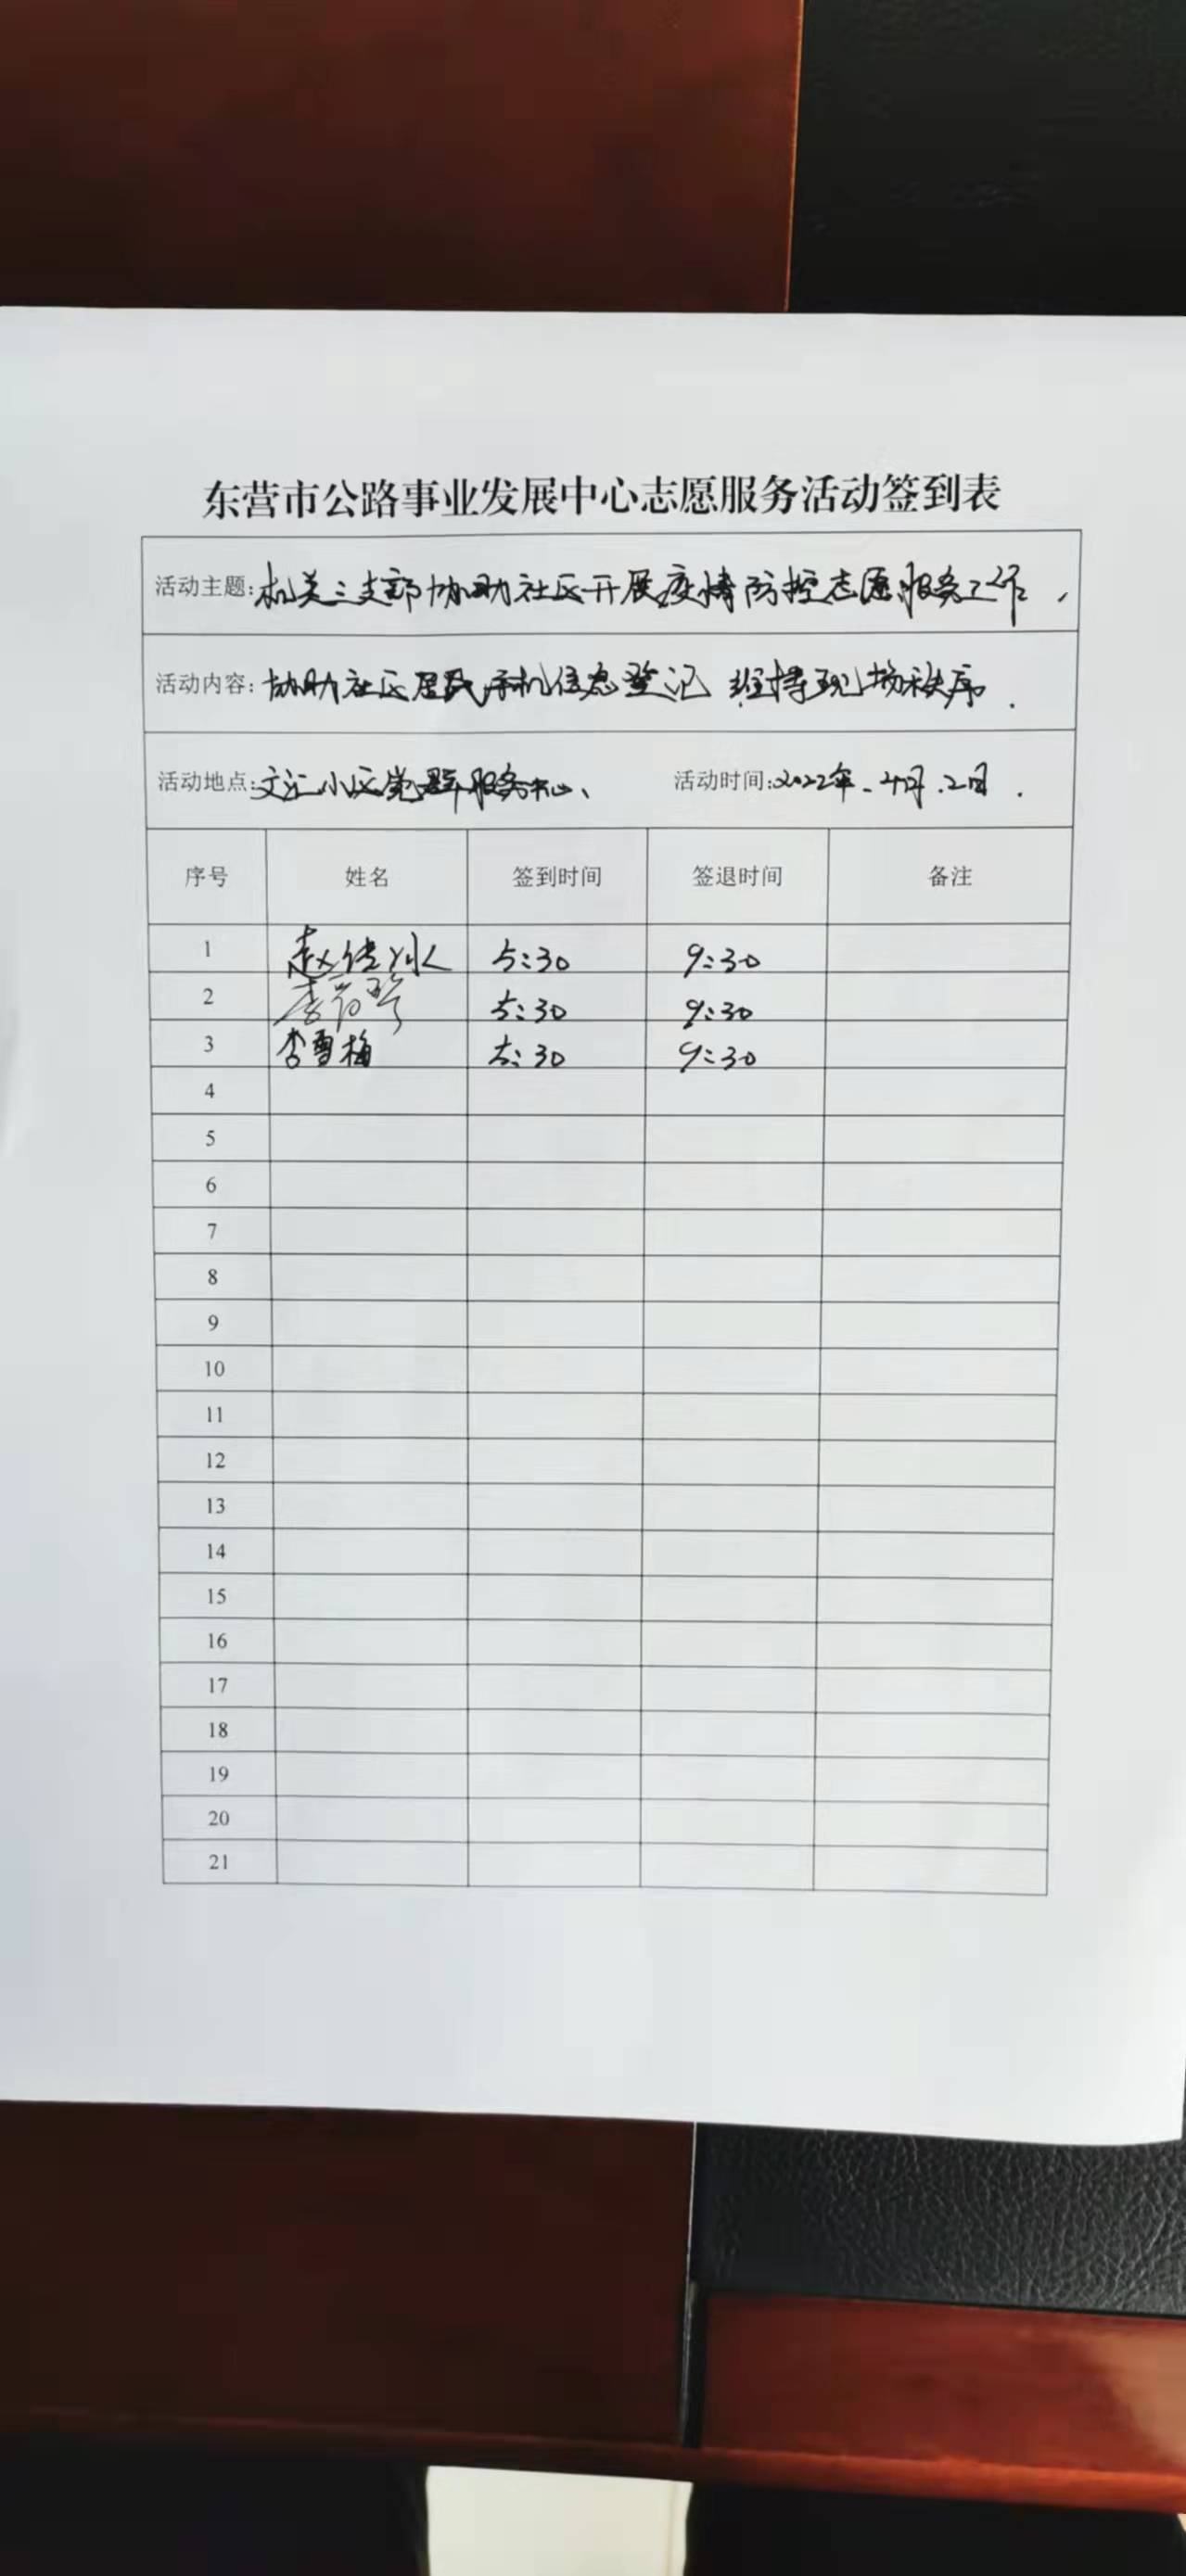 东营市公路事业发展中心志愿服务活动签到表
活动主题:机关三支部协助社区开展疫情防控志愿服务工作.
活动内容:协助社区居民手机信息登记 维持现场秩序.
活动地点:文汇小区党群服务中心、 活动时间:2022年.4月.2日.
序号 姓名 签到时间 签退时间 备注
1 赵 5:30 9:30
2 李 5:30 9:30
3 李雪梅 5:30 9:30
4
5
6
7
8
9
10
11
12
13
14
15
16
17
18
19
20
21